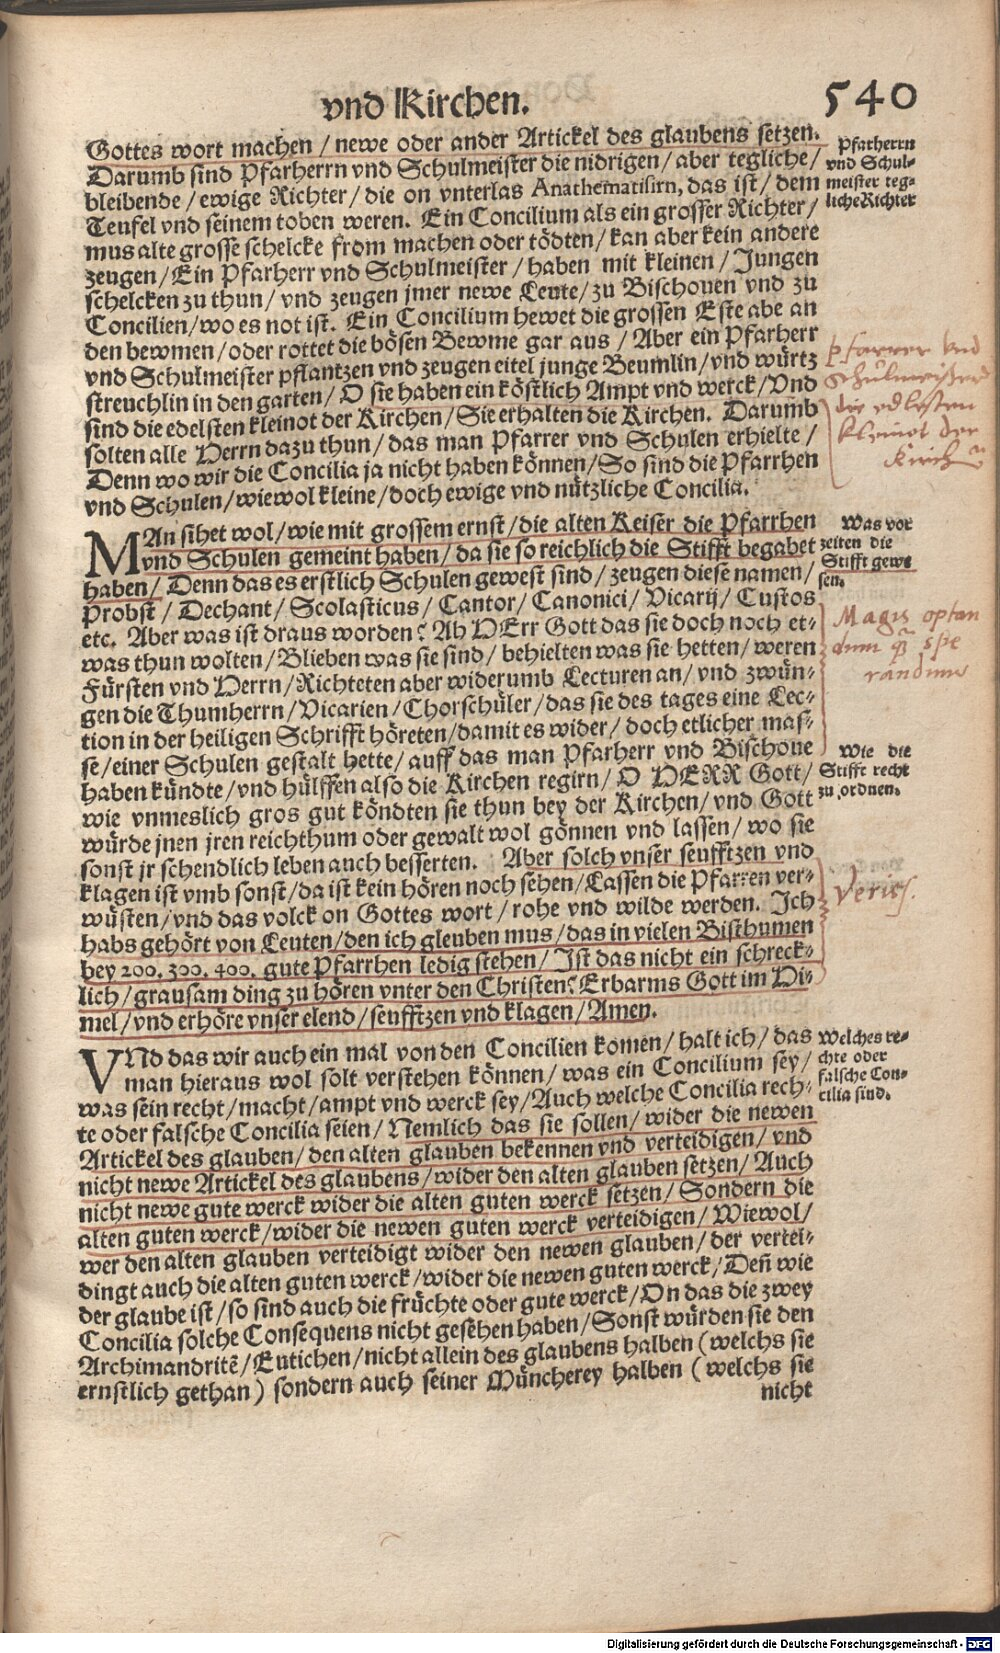 vnd Kirchen.
540
Gottes wort machen / newe oder ander Artickel des glaubens setzen.
Darumb sind Pfarherrn vnd Schulmeister die nidrigen / aber tegliche /
bleibende / ewige Richter / die on vnterlas Anathematisirn, das ist / dem
Teufel vnd seinem toben weren. Ein Concilium als ein grosser Richter /
mus alte grosse schelcke from machen oder tödten / kan aber kein andere
zeugen / Ein Pfarherr vnd Schulmeister / haben mit kleinen / Jungen
schelcken zu thun / vnd zeugen jmer newe Leute / zu Bischouen vnd zu
Concilien / wo es not ist. Ein Concilium hewet die grossen Este abe an
den bewmen / oder rottet die bösen Bewme gar aus / Aber ein Pfarherr
vnd Schulmeister pflantzen vnd zeugen eitel junge Beumlin / vnd würtz
streuchlin in den garten / O sie haben ein köstlich Ampt vnd werck / Vnd
sind die edelsten kleinot der Kirchen / Sie erhalten die Kirchen. Darumb
solten alle Herrn dazu thun / das man Pfarrer vnd Schulen erhielte /
Denn wo wir die Concilia ja nicht haben können / So sind die Pfarrhen
vnd Schulen / wiewol kleine / doch ewige vnd nützliche Concilia.
Pfarherrn
vnd Schul-
meister teg-
liche Richter
Pfarrer vnd
Schulmeister
die edlesten
kleinot der
Kirch
MAn sihet wol / wie mit grossem ernst / die alten Keiser die Pfarrhen
vnd Schulen gemeint haben / da sie so reichlich die Stifft begabet
haben / Denn das es erstlich Schulen gewest sind / zeugen diese namen /
Probst / Dechant / Scolasticus / Cantor / Canonici / Vicarij / Custos
etc. Aber was ist draus worden? Ah HErr Gott das sie doch noch et-
was thun wolten / Blieben was sie sind / behielten was sie hetten / weren
Fürsten vnd Herrn / Richteten aber widerumb Lecturen an / vnd zwün-
gen die Thumherrn / Vicarien / Chorschüler / das sie des tages eine Lec-
tion in der heiligen Schrifft höreten / damit es wider / doch etlicher mas-
se / einer Schulen gestalt hette / auff das man Pfarherr vnd Bischoue
haben kündte / vnd hülffen also die Kirchen regirn / O HERR Gott /
wie vnmeslich gros gut köndten sie thun bey der Kirchen / vnd Gott
würde jnen jren reichthum oder gewalt wol gönnen vnd lassen / wo sie
sonst jr schendlich leben auch besserten. Aber solch vnser seufftzen vnd
klagen ist vmb sonst / da ist kein hören noch sehen / Lassen die Pfarren ver-
wüsten / vnd das volck on Gottes wort / rohe vnd wilde werden. Ich
habs gehört von Leuten / den ich gleuben mus / das in vielen Bisthumen
bey 200. 300. 400. gute Pfarrhen ledig stehen / Ist das nicht ein schreck-
lich / grausam ding zu hören vnter den Christen? Erbarms Gott im Hi-
mel / vnd erhöre vnser elend / seufftzen vnd klagen / Amen.
Was vor
zeiten die
Stifft gewe
sen.
Magis optan
dum q̃ spe
randum
Wie die
Stifft recht
zu ordnen.
VNd das wir auch ein mal von den Concilien komen / halt ich / das
man hieraus wol solt verstehen können / was ein Concilium sey /
was sein recht / macht / ampt vnd werck sey / Auch welche Concilia rech-
te oder falsche Concilia seien / Nemlich das sie sollen / wider die newen
Artickel des glauben / den alten glauben bekennen vnd verteidigen / vnd
nicht newe Artickel des glaubens / wider den alten glauben setzen / Auch
nicht newe gute werck wider die alten guten werck setzen / Sondern die
alten guten werck / wider die newen guten werck verteidigen / Wiewol /
wer den alten glauben verteidigt wider den newen glauben / der vertei-
dingt auch die alten guten werck / wider die newen guten werck / Deñ wie
der glaube ist / so sind auch die früchte oder gute werck / On das die zwey
Concilia solche Consequens nicht gesehen haben / Sonst würden sie den
Archimandritē / Eutichen / nicht allein des glaubens halben (welchs sie
ernstlich gethan) sondern auch seiner Müncherey halben (welchs sie
nicht
Welches re-
chte oder
falsche Con-
cilia sind.
Digitalisierung gefördert durch die Deutsche Forschungsgemeinschaft - DFG